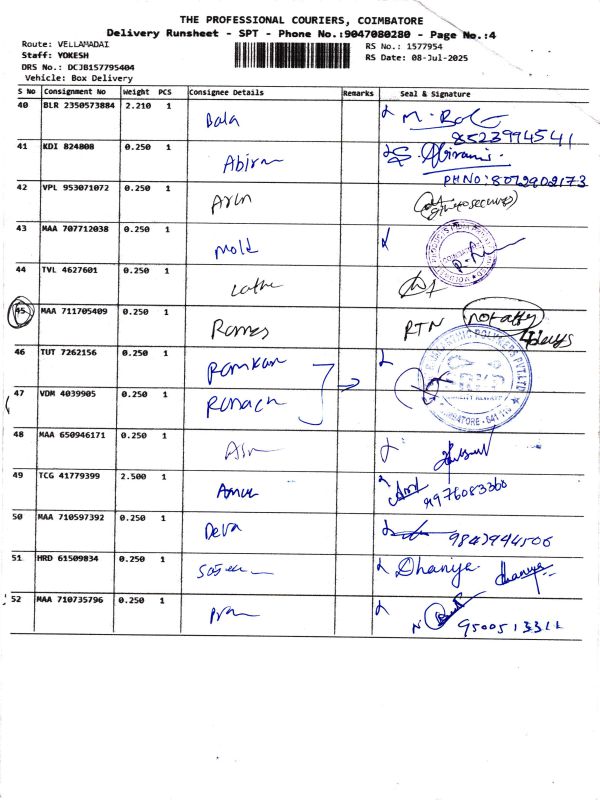 THE PROFESSIONAL COURIERS, COIMBATORE
Delivery Runsheet - SPT - Phone No.:9047080280 - Page No.:4
Route: VELLAMADAI
RS No.: 1577954
Staff: YOKESH
RS Date: 08-Jul-2025
DRS No.: DCJB157795404
Vehicle: Box Delivery
S No Consignment No Weight PCS Consignee Details Remarks Seal & Signature
40 BLR 2350573884 2.210 1 Bala M. Bala
8523994541
41 KDI 824808 0.250 1 Abiram S. Abirami
PH NO: 8072902173
42 VPL 953071072 0.250 1 Arun
43 MAA 707712038 0.250 1 Mold
44 TVL 4627601 0.250 1 Latha
45 MAA 711705409 0.250 1 Rames RTN
46 TUT 7262156 0.250 1 Ramkan
47 VDM 4039905 0.250 1
COIMBATORE - 641 110
48 MAA 650946171 0.250 1
49 TCG 41779399 2.500 1
50 MAA 710597392 0.250 1 Deva
51 HRD 61509834 0.250 1 Dhaniya Dhaniya
52 MAA 710735796 0.250 1 Pran